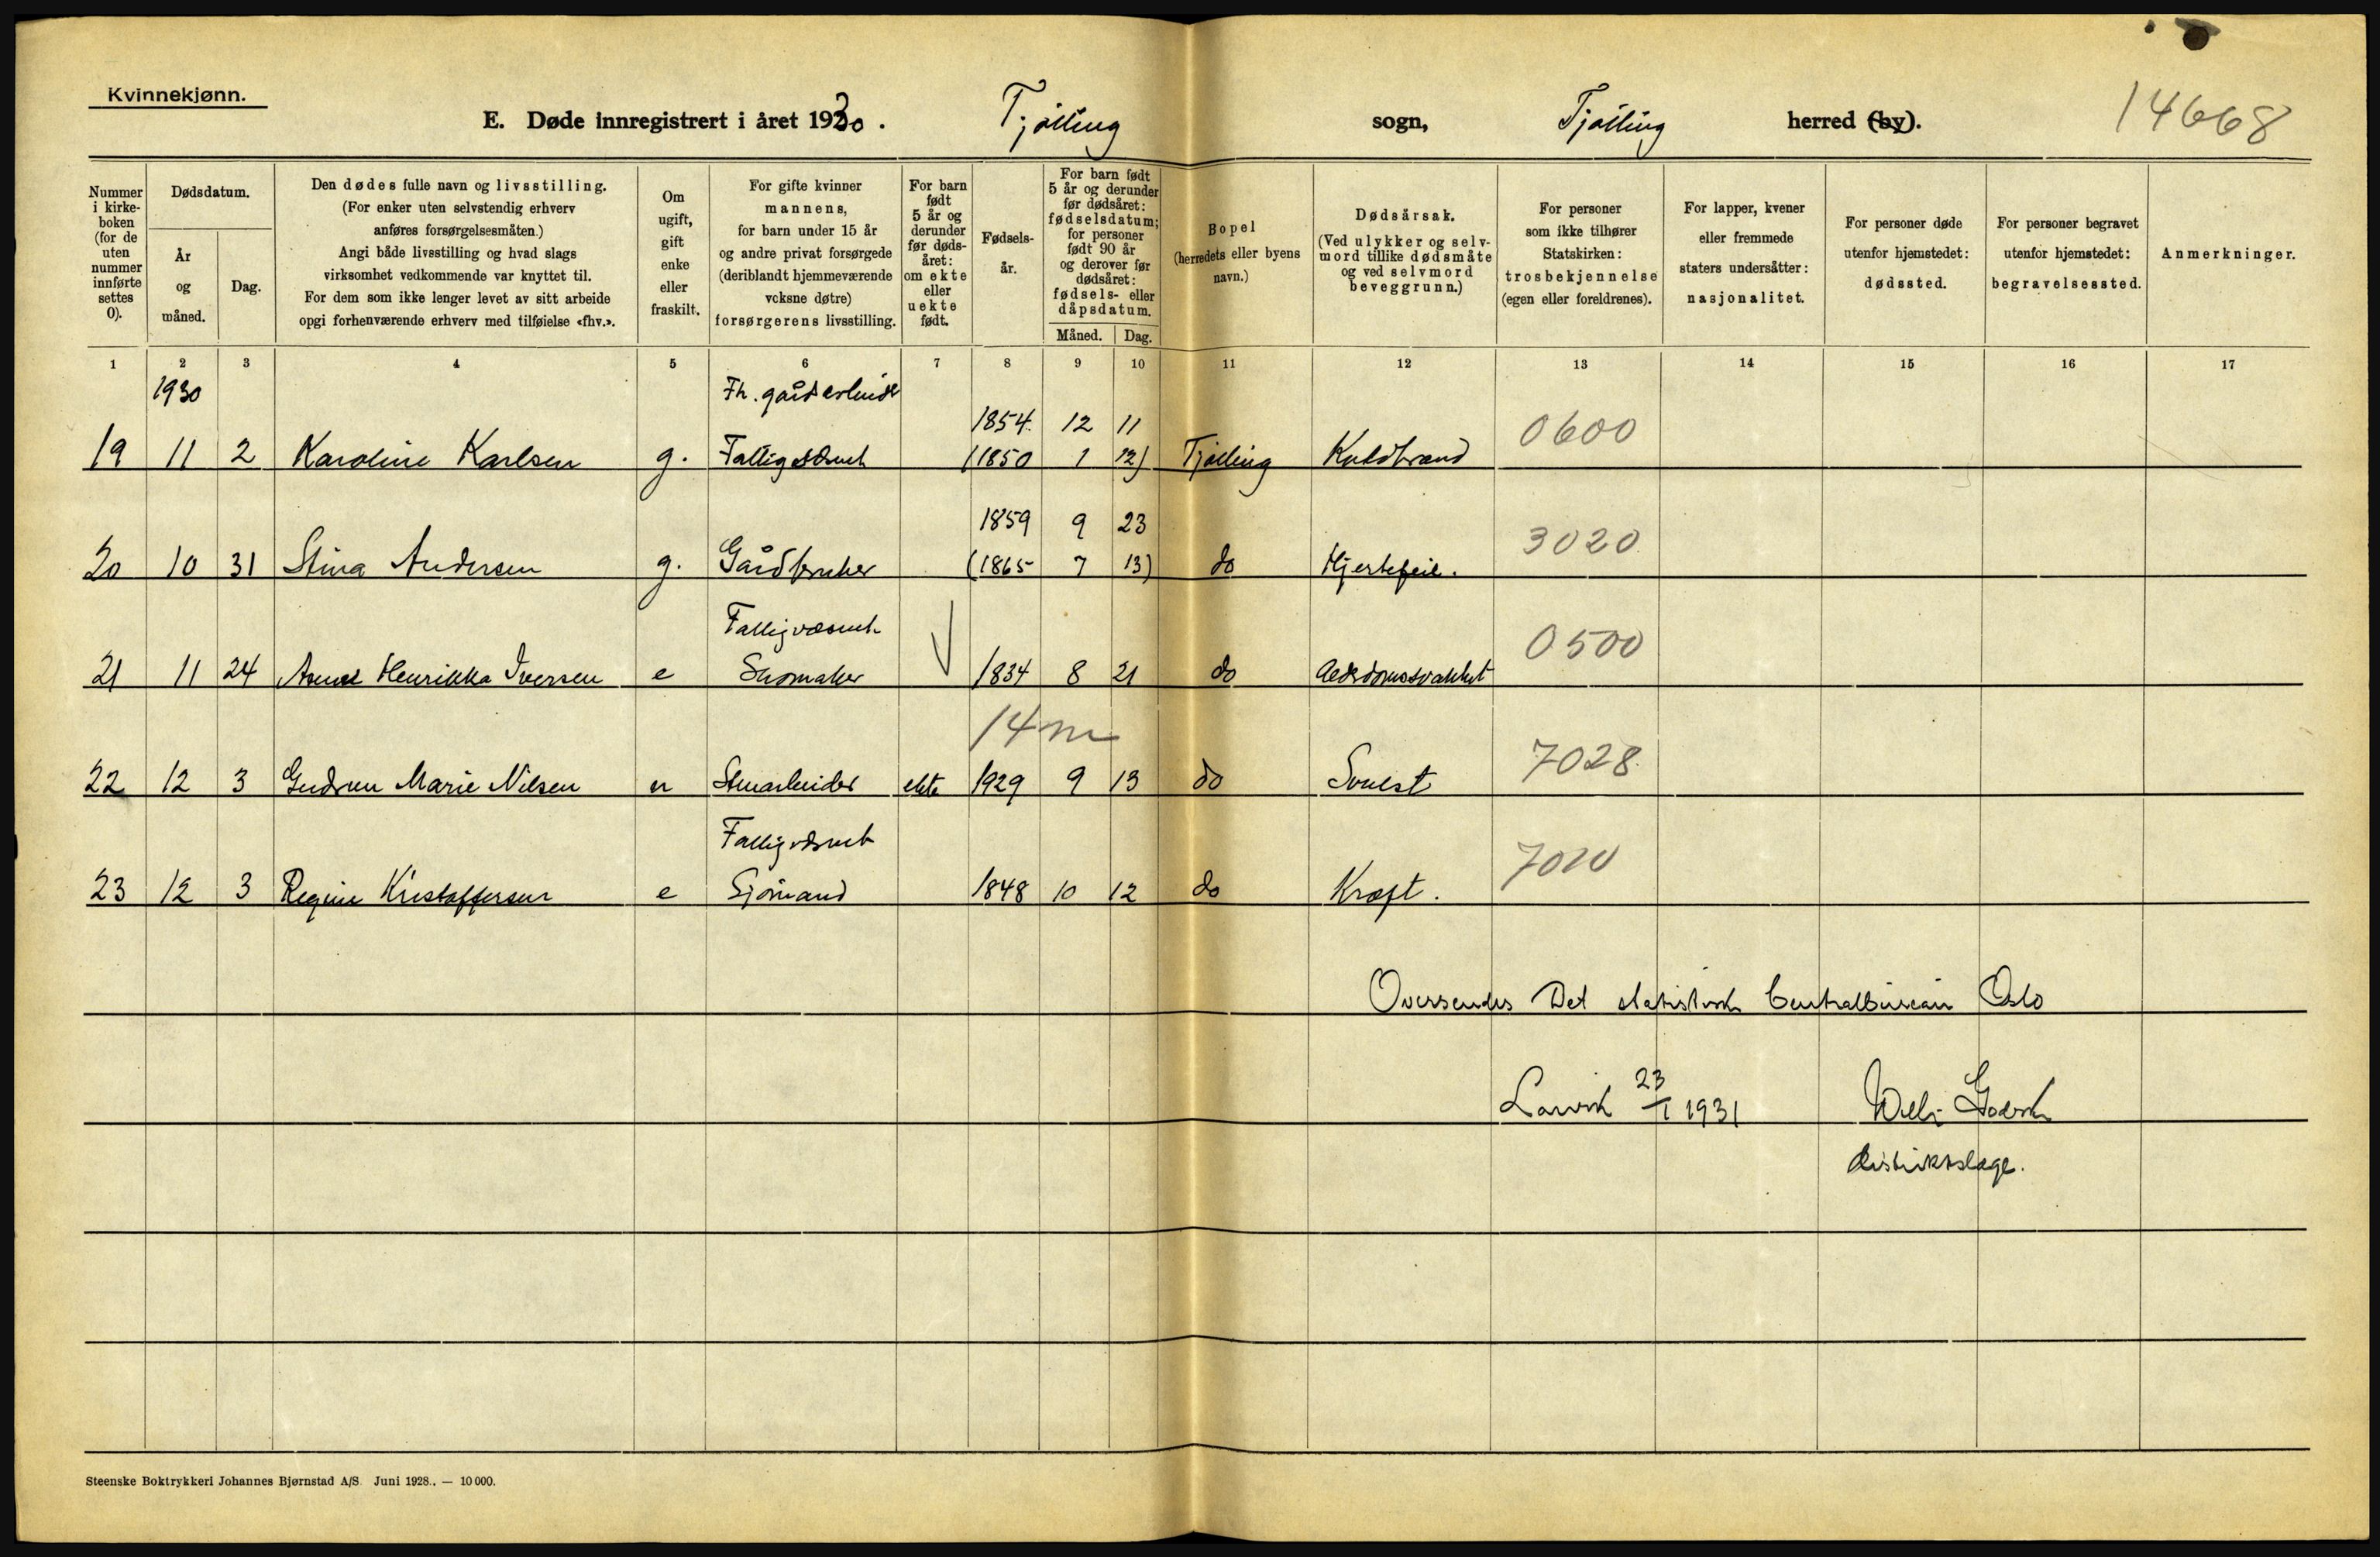 Kvinnekjønn.
E. Døde innregistrert i året 1930. Tjølling sogn, Tjølling herred (by). 14668
Nummer i kirke-boken (for de uten nummer innførte settes 0).
Dødsdatum.
År og måned.
Dag.
Den dødes fulle navn og livsstilling.
(For enker uten selvstendig erhverv
anføres forsørgelsesmåten.)
Angi både livsstilling og hvad slags
virksomhet vedkommende var knyttet til.
For dem som ikke lenger levet av sitt arbeide
opgi forhenværende erhverv med tilføielse «fhv.».
Om ugift, gift enke eller fraskilt.
For gifte kvinner
mannens,
for barn under 15 år
og andre privat forsørgede
(deriblandt hjemmeværende
voksne døtre)
forsørgerens livsstilling.
For barn født 5 år og derunder før døds-året: om ekte eller uekte født.
Fødsels-år.
For barn født
5 år og derunder
før dødsåret:
fødselsdatum;
for personer
født 90 år
og derover før
dødsåret:
fødsels- eller
dåpsdatum.
Måned. Dag.
Bopel
(herredets eller byens
navn.)
Dødsårsak.
(Ved ulykker og selv-
mord tillike dødsmåte
og ved selvmord
beveggrunn.)
For personer
som ikke tilhører
Statskirken:
trosbekjennelse
(egen eller foreldrenes).
For lapper, kvener
eller fremmede
staters undersåtter:
nasjonalitet.
For personer døde
utenfor hjemstedet:
dødssted.
For personer begravet
utenfor hjemstedet:
begravelsessted.
Anmerkninger.
1 2 3 4 5 6 7 8 9 10 11 12 13 14 15 16 17
1930 Fh. gårdarbeider
1854 12 11
19 11 2 Karoline Karlsen g. Fattigvæsnet (1850 1 12) Tjølling Koldbrand 0600
1859 9 23
20 10 31 Stina Andersen g. Gårdbruker (1865 7 13) do Hjertefeil. 3020
Fattigvæsnet
21 11 24 Henrikka Iversen e Skomaker 1834 8 21 do Alderdomssvakhet 0500
14 m
22 12 3 Gudrun Marie Nilsen u Stenarbeider ekte 1929 9 13 do Svulst 7028
Fattigvæsnet
23 12 3 Regine Kristoffersen e Sjømand 1848 10 12 do Kræft.
Oversendes Det statistiske Centralbureau Oslo
Larvik 23/1 1931
distriktslæge.
Steenske Boktrykkeri Johannes Bjørnstad A/S. Juni 1928.. — 10 000.